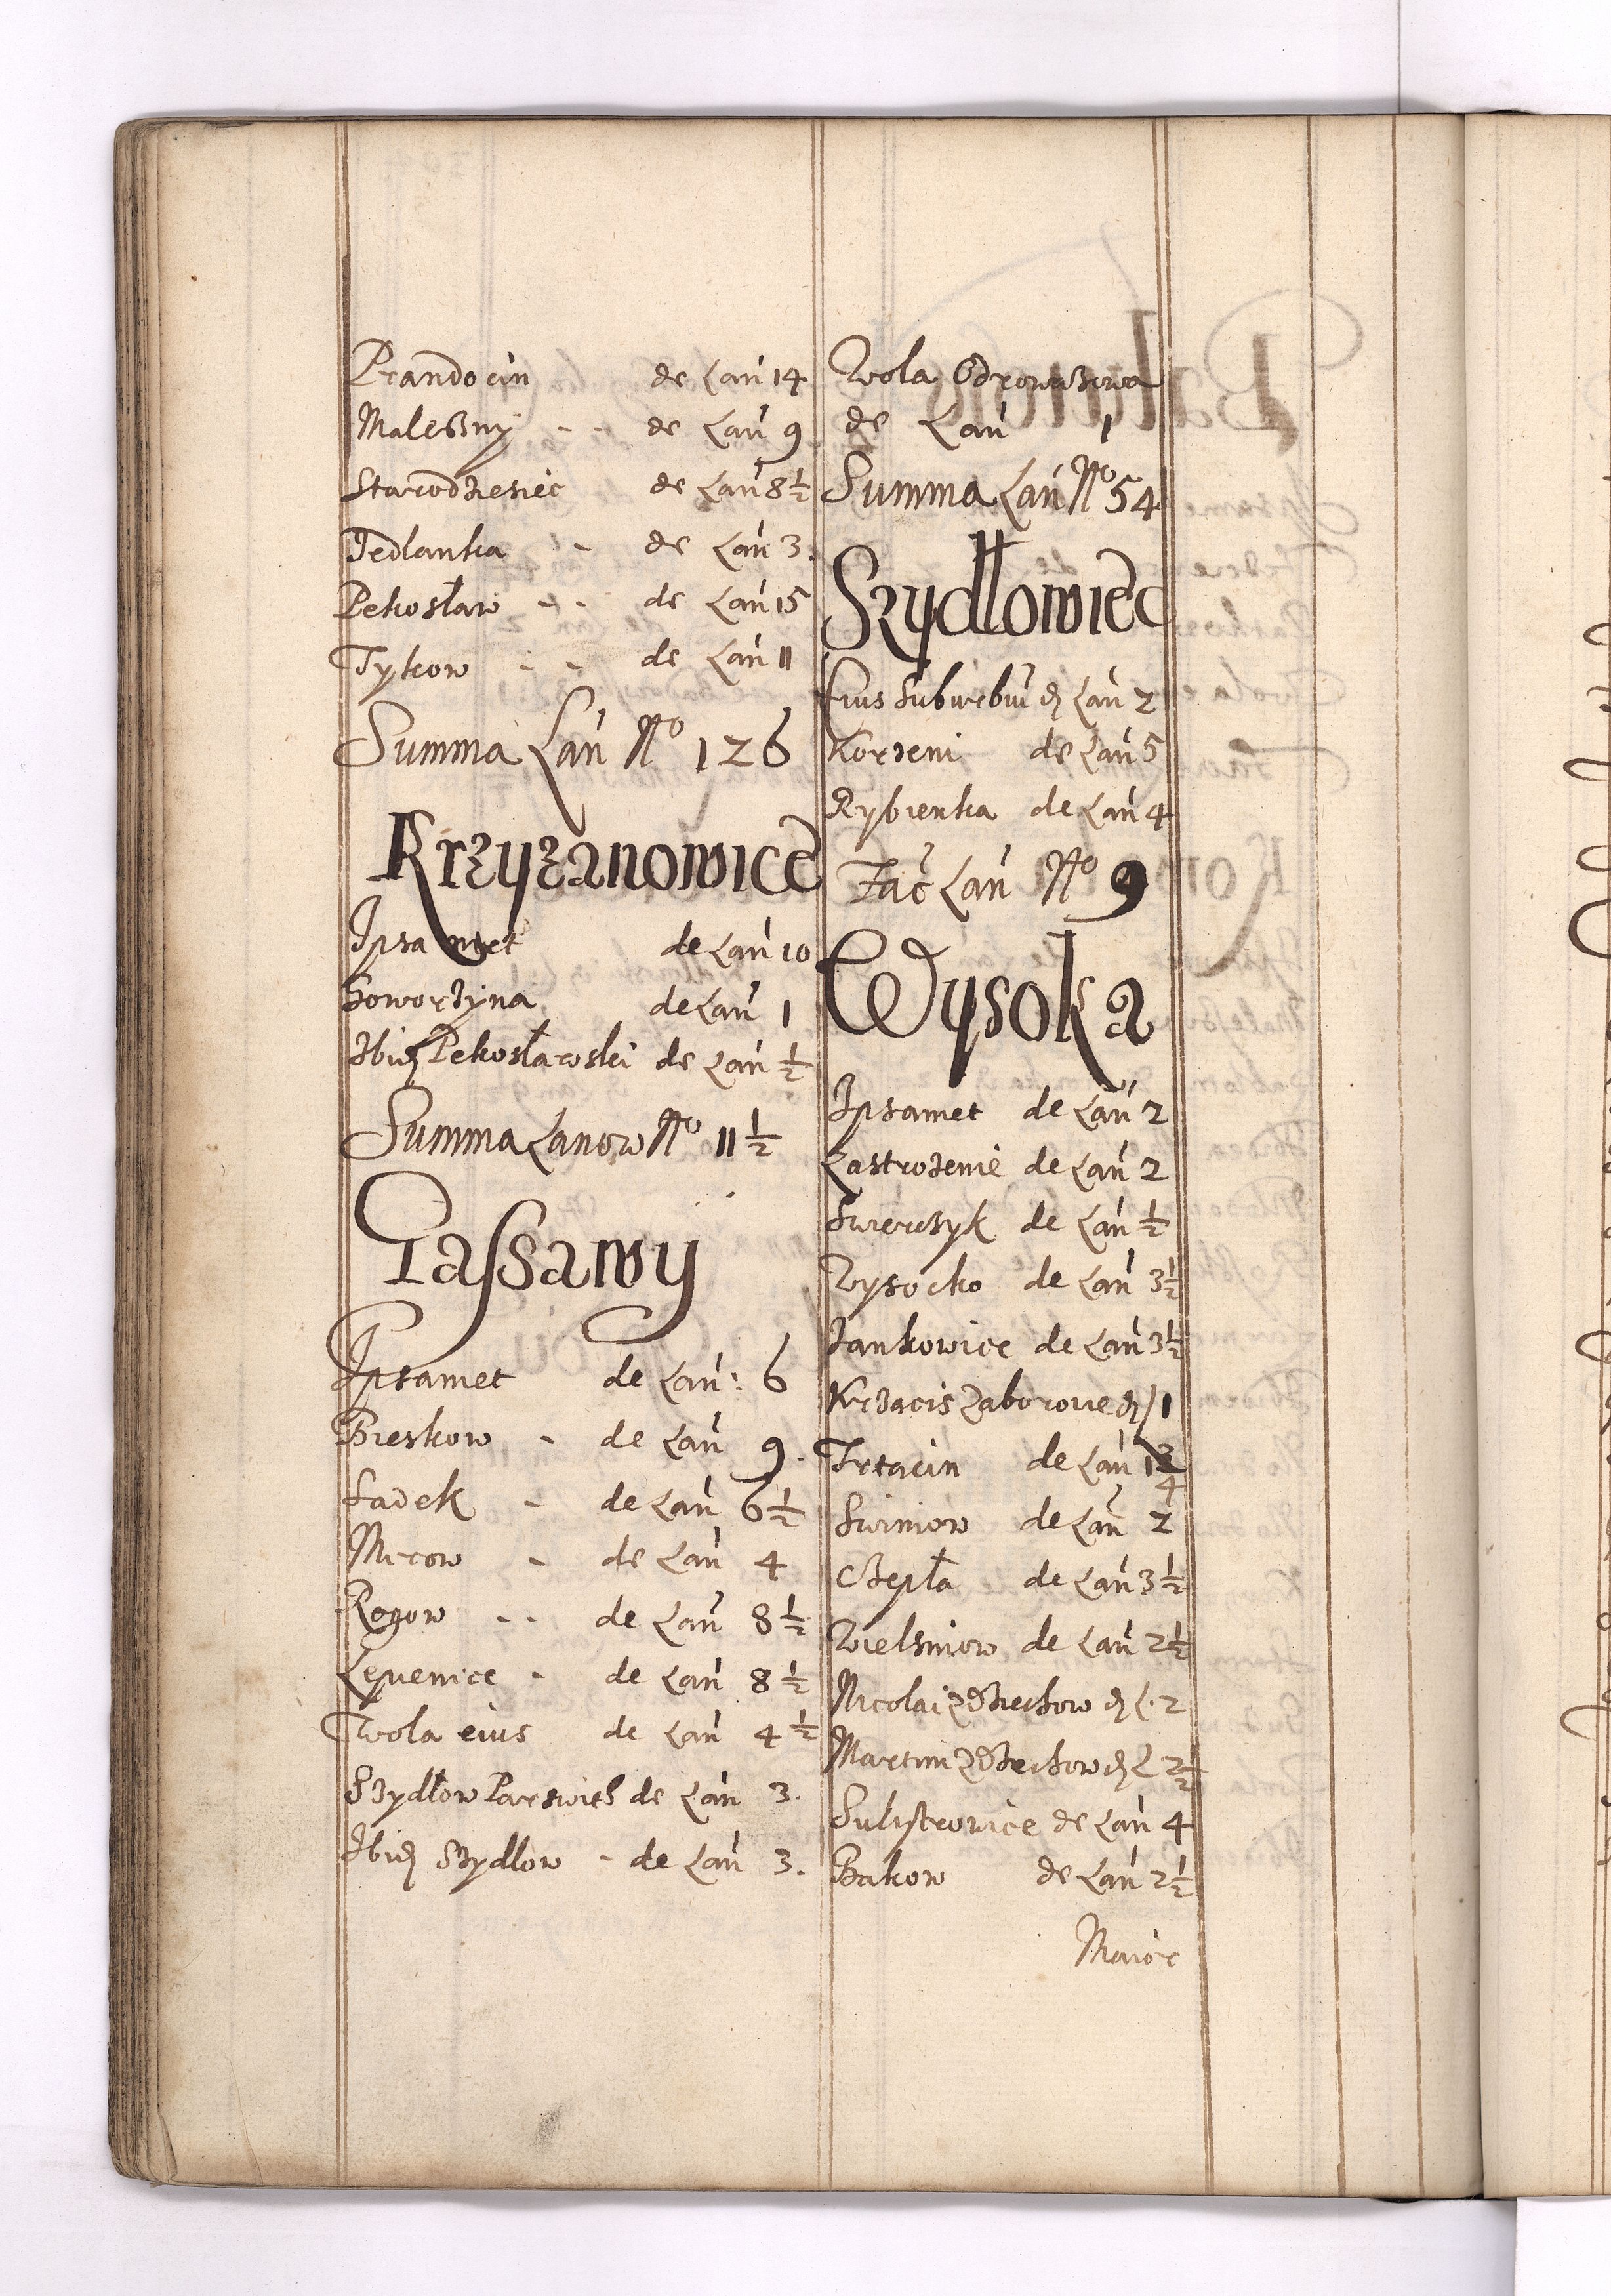 Prandocin de Lan 14
Maleszny - - de Lan 9
Starodziesiec de Lan 8½
Jedlanka - de Lan 3.
Pekosław - - de Lan 15
Tykow - - de Lan 11
Summa Lan No 126
Krzyżanowice
Ipsamet de Lan 10
Goworzyna de Lan 1
Ibid Pekosławski de Lan ½
Summa Lanow No 11½
Jassawy
Ipsamet de Lan: 6
Breskow - de Lan 9.
Sadek - de Lan 6½
Mirow - de Lan 4
Rogow - - de Lan 8½
Lepienice - de Lan 8½
Wola eius de Lan 4½
Szydłow de Lan 3.
Ibid Szydlow - de Lan 3.
Wola Odrowazowa
de Lan 1
Summa Lan No 54
Szydłowiec
Eius Suburbiū d Lan 2
Korzeni de Lan 5
Rybienka de Lan 4
Fac Lan No 9
Wysoka
Ipsamet de Lan 2
Zastrozenie de Lan 2
Swierczyk de Lan ½
Wysocko de Lan 3½
Jankowice de Lan 3½
d 1
Trtacin de Lan 1¾
Swiniow de Lan 2
Czepła de Lan 3½
Wielsniow de Lan 2½
Nicolai Zdziechow d L. 2
Martini Zdziechow d L 2½
Sulistrowice de Lan 4
Bakow de Lan 2½
Maior